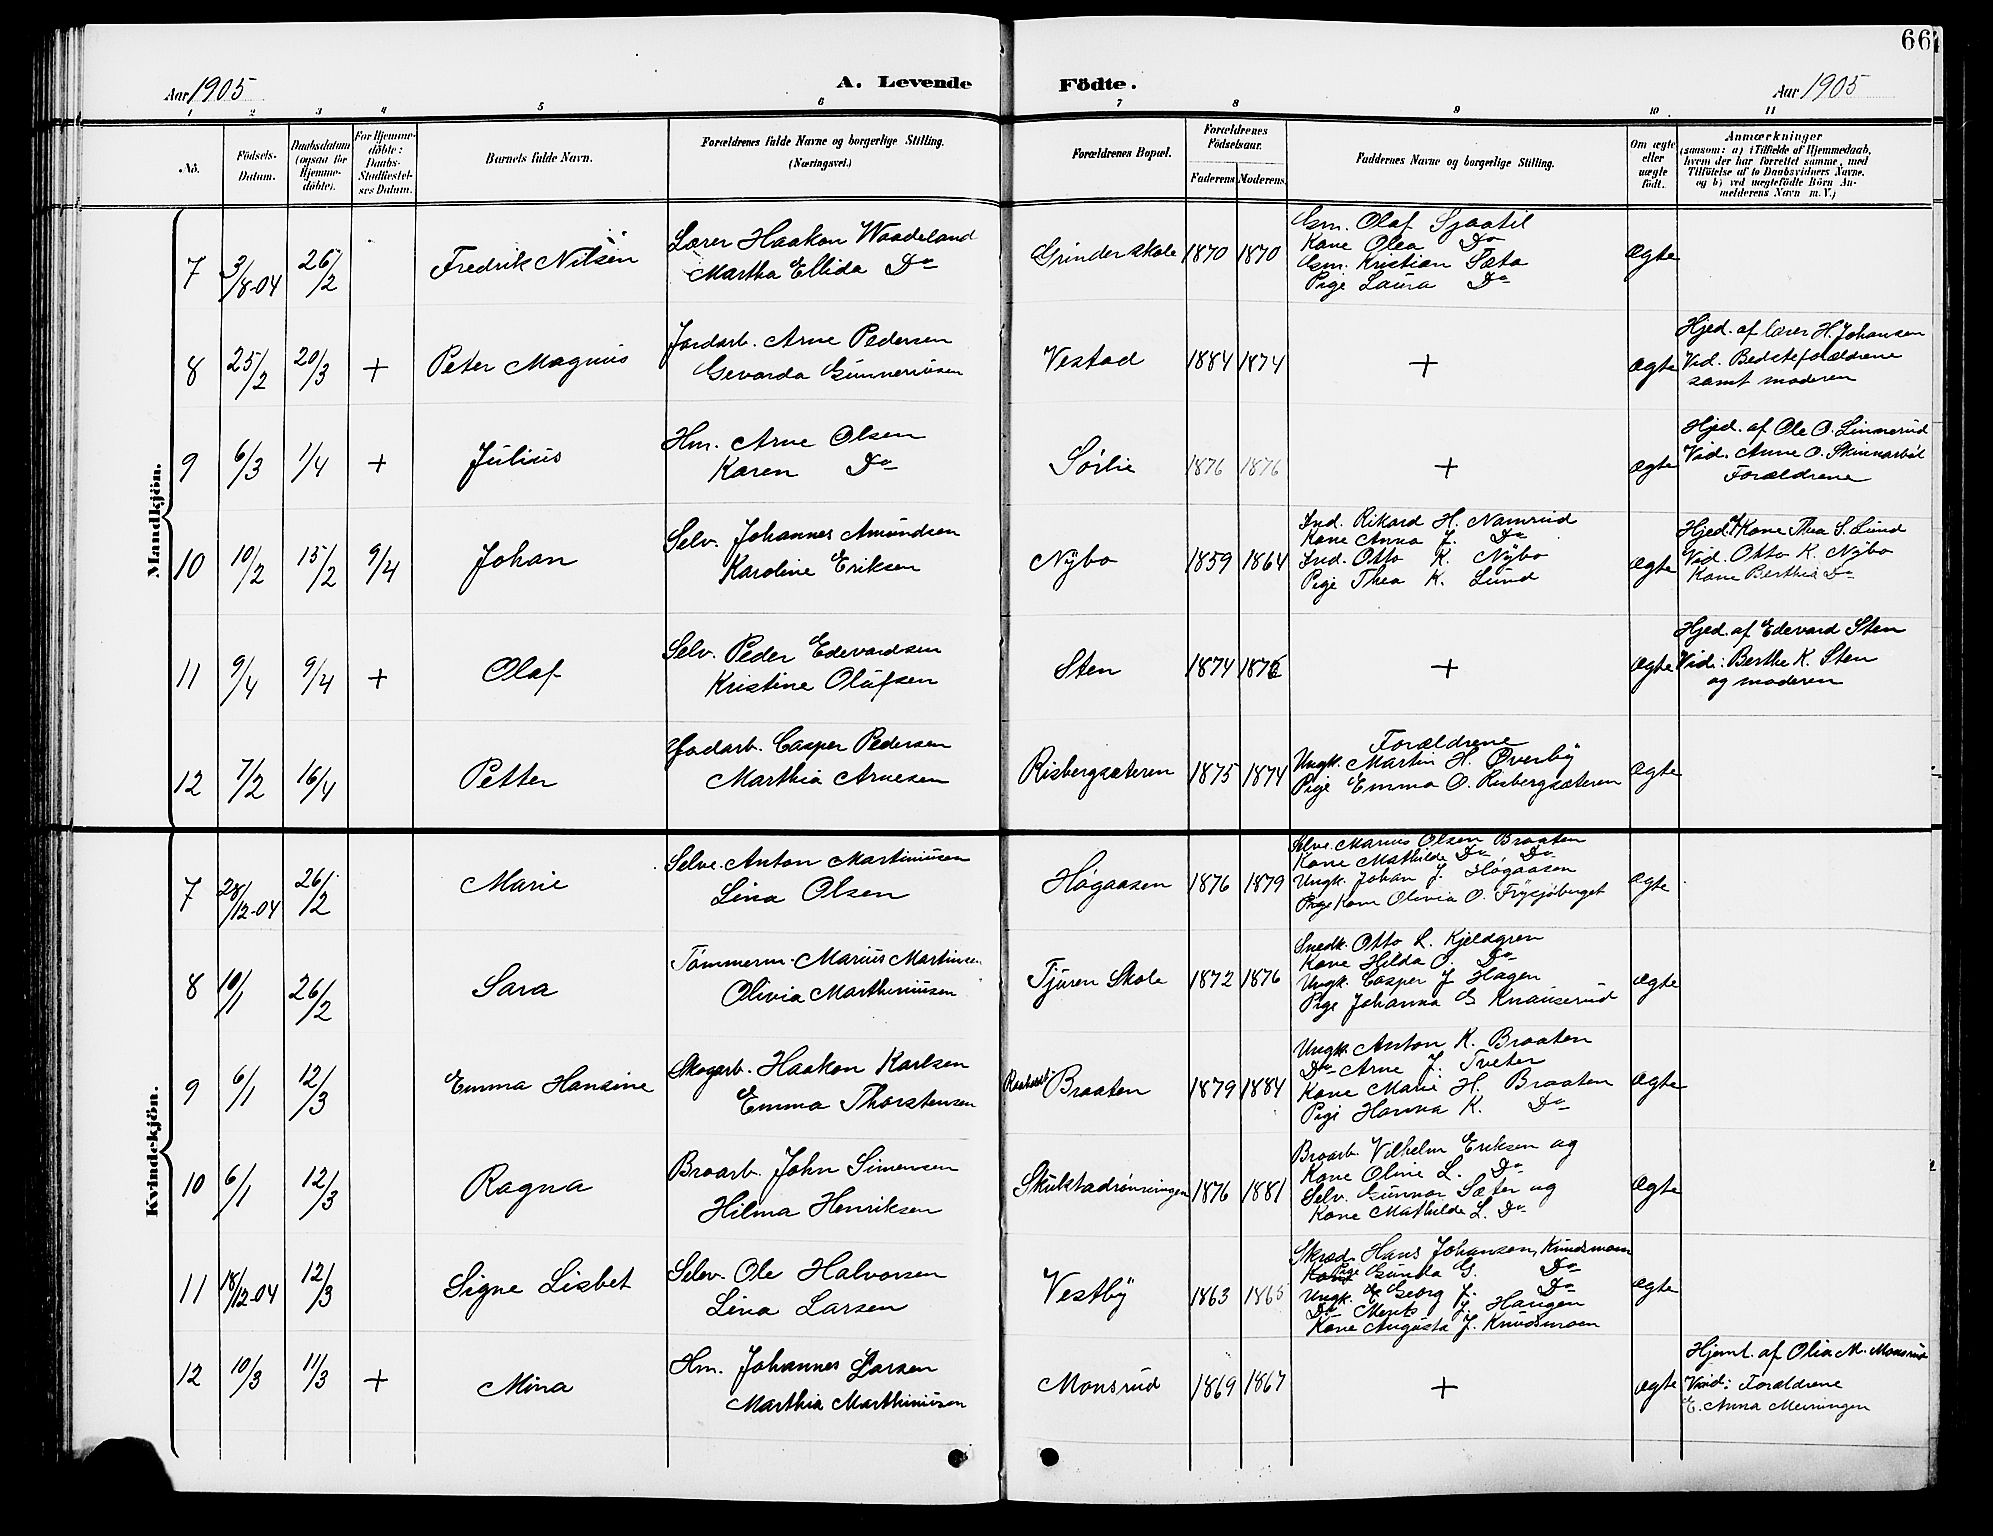 66
Aar 1905
A. Levende Födte.
Aar 1905
1 2 3 4 5 6 7 8 9 10 11
No. Födsels-Datum. Daabsdatum (ogsaa for Hjemme-döbte). For Hjemme-döbte: Daabs-Stadfæstel-ses Datum. Barnets fulde Navn. Forældrenes fulde Navne og borgerlige Stilling. (Næringsvei.) Forældrenes Bopæl. Forældrenes Födselsaar. Faderens Moderens. Faddernes Navne og borgerlige Stilling. Om ægte eller uægte födt. Anmærkninger
(saasom: a) i Tilfælde af Hjemmedaab,
hvem der har forrettet samme, med
Tilföielse af to Daabsvidners Navne.
og b) ved uægtefödte Börn An-
melderens Navn m. V.)
Mandkjön.
7 3/8-04 26/2 Fredrik Nilsen
Lærer Haakon Waadeland
Martha Ellida Do
Grinder skole 1870 1870
Gm. Olaf Sjaatil
Kone Olea Do
Gm. Kristian Sæta
Pige Laura Do
ægte
8 25/2 20/3 + Peter Magnus
Jordarb. Arne Pedersen
Gevarda Gunneriusen
Vestad 1884 1874 + ægte
Hjed. af lærer H. Johansen
Vid. Bedsteforældrene
samt moderen
9 6/3 1/4 + Julius
Hm. Arne Olsen
Karen Do
Sørlie 1876 1876 + ægte
Hjed. af Ole O. Linnerud
Vid. Anne O. Skinnarbøl
Forældrene
10 10/2 15/2 9/4 Johan
Selv. Johannes Amundsen
Karoline Eriksen
Nybo 1859 1864
Ind. Rikard H. Namrud
Kone Anna J. Do
Ind. Otto K. Nybo
Pige Thea K. Lund
ægte
Hjed. af Kone Thea S. Lund
Vid. Otto K. Nybo
Kone Berthia Do
11 9/4 9/4 + Olaf
Selv. Peder Edevardsen
Kristine Olufsen
Sten 1874 1876 + ægte
Hjed. af Edevard Sten
Vid: Berthe K. Sten
og moderen
12 7/2 16/4 Petter
Jordarb. Casper Pedersen
Marthia Arnesen
Risbergsæteren 1875 1874
Forældrene
Ungk. Martin H. Øverby
Pige Emma O. Risbergsæteren
ægte
Kvindekjön.
7 28/12-04 26/2 Marie
Selve. Anton Martiniusen
Lina Olsen
Høgaasen 1876 1879
Selve. Marius Olsen Braaten
Kone Mathilde Do Do
Ungk. Johan J. Høgaasen
Pige Kone Olivia O. Frysjøberget
ægte
8 10/1 26/2 Sara
Tømmerm. Marius Martinsen
Olivia Marthiniusen
Tjuren Skole 1872 1876
Snedk. Otto L. Kjeldgren
Kone Hilda O. Do
Ungk. Casper J Hagen
Pige Johanna G Knauserud
ægte
9 6/1 12/3 Emma Hansine
Skogarb. Haakon Karlsen
Emma Thorstensen
Braaten 1879 1884
Ungk. Anton K. Braaten
Do Arne J. Tveter
Kone Marie H. Braaten
Pige Hanna K. Do
ægte
10 6/1 12/3 Ragna
Broarb. John Simensen
Hilma Henriksen
Skulstadrønningen 1876 1881
Broarb. Vilhelm Eriksen og
Kone Oline L. Do
Selv. Gunnar Sæter og
Kone Mathilde L. Do
ægte
11 18/12-04 12/3 Signe Lisbet
Selv. Ole Halvorsen
Lina Larsen
Vestby 1863 1865
Skræd. Hans Johansen, Knudsmoen
Pige Gunda G. Do
Ungk. Georg J. Do
Do J. Haugen
Kone Augusta J. Knudsmoen
ægte
12 10/3 11/3 + Mina
Hm. Johannes Larsen
Marthia Marthiniusen
Monsrud 1869 1867 + ægte
Hjemt. af Olia M. Monsrud
Vid: Forældrene
E. Anna